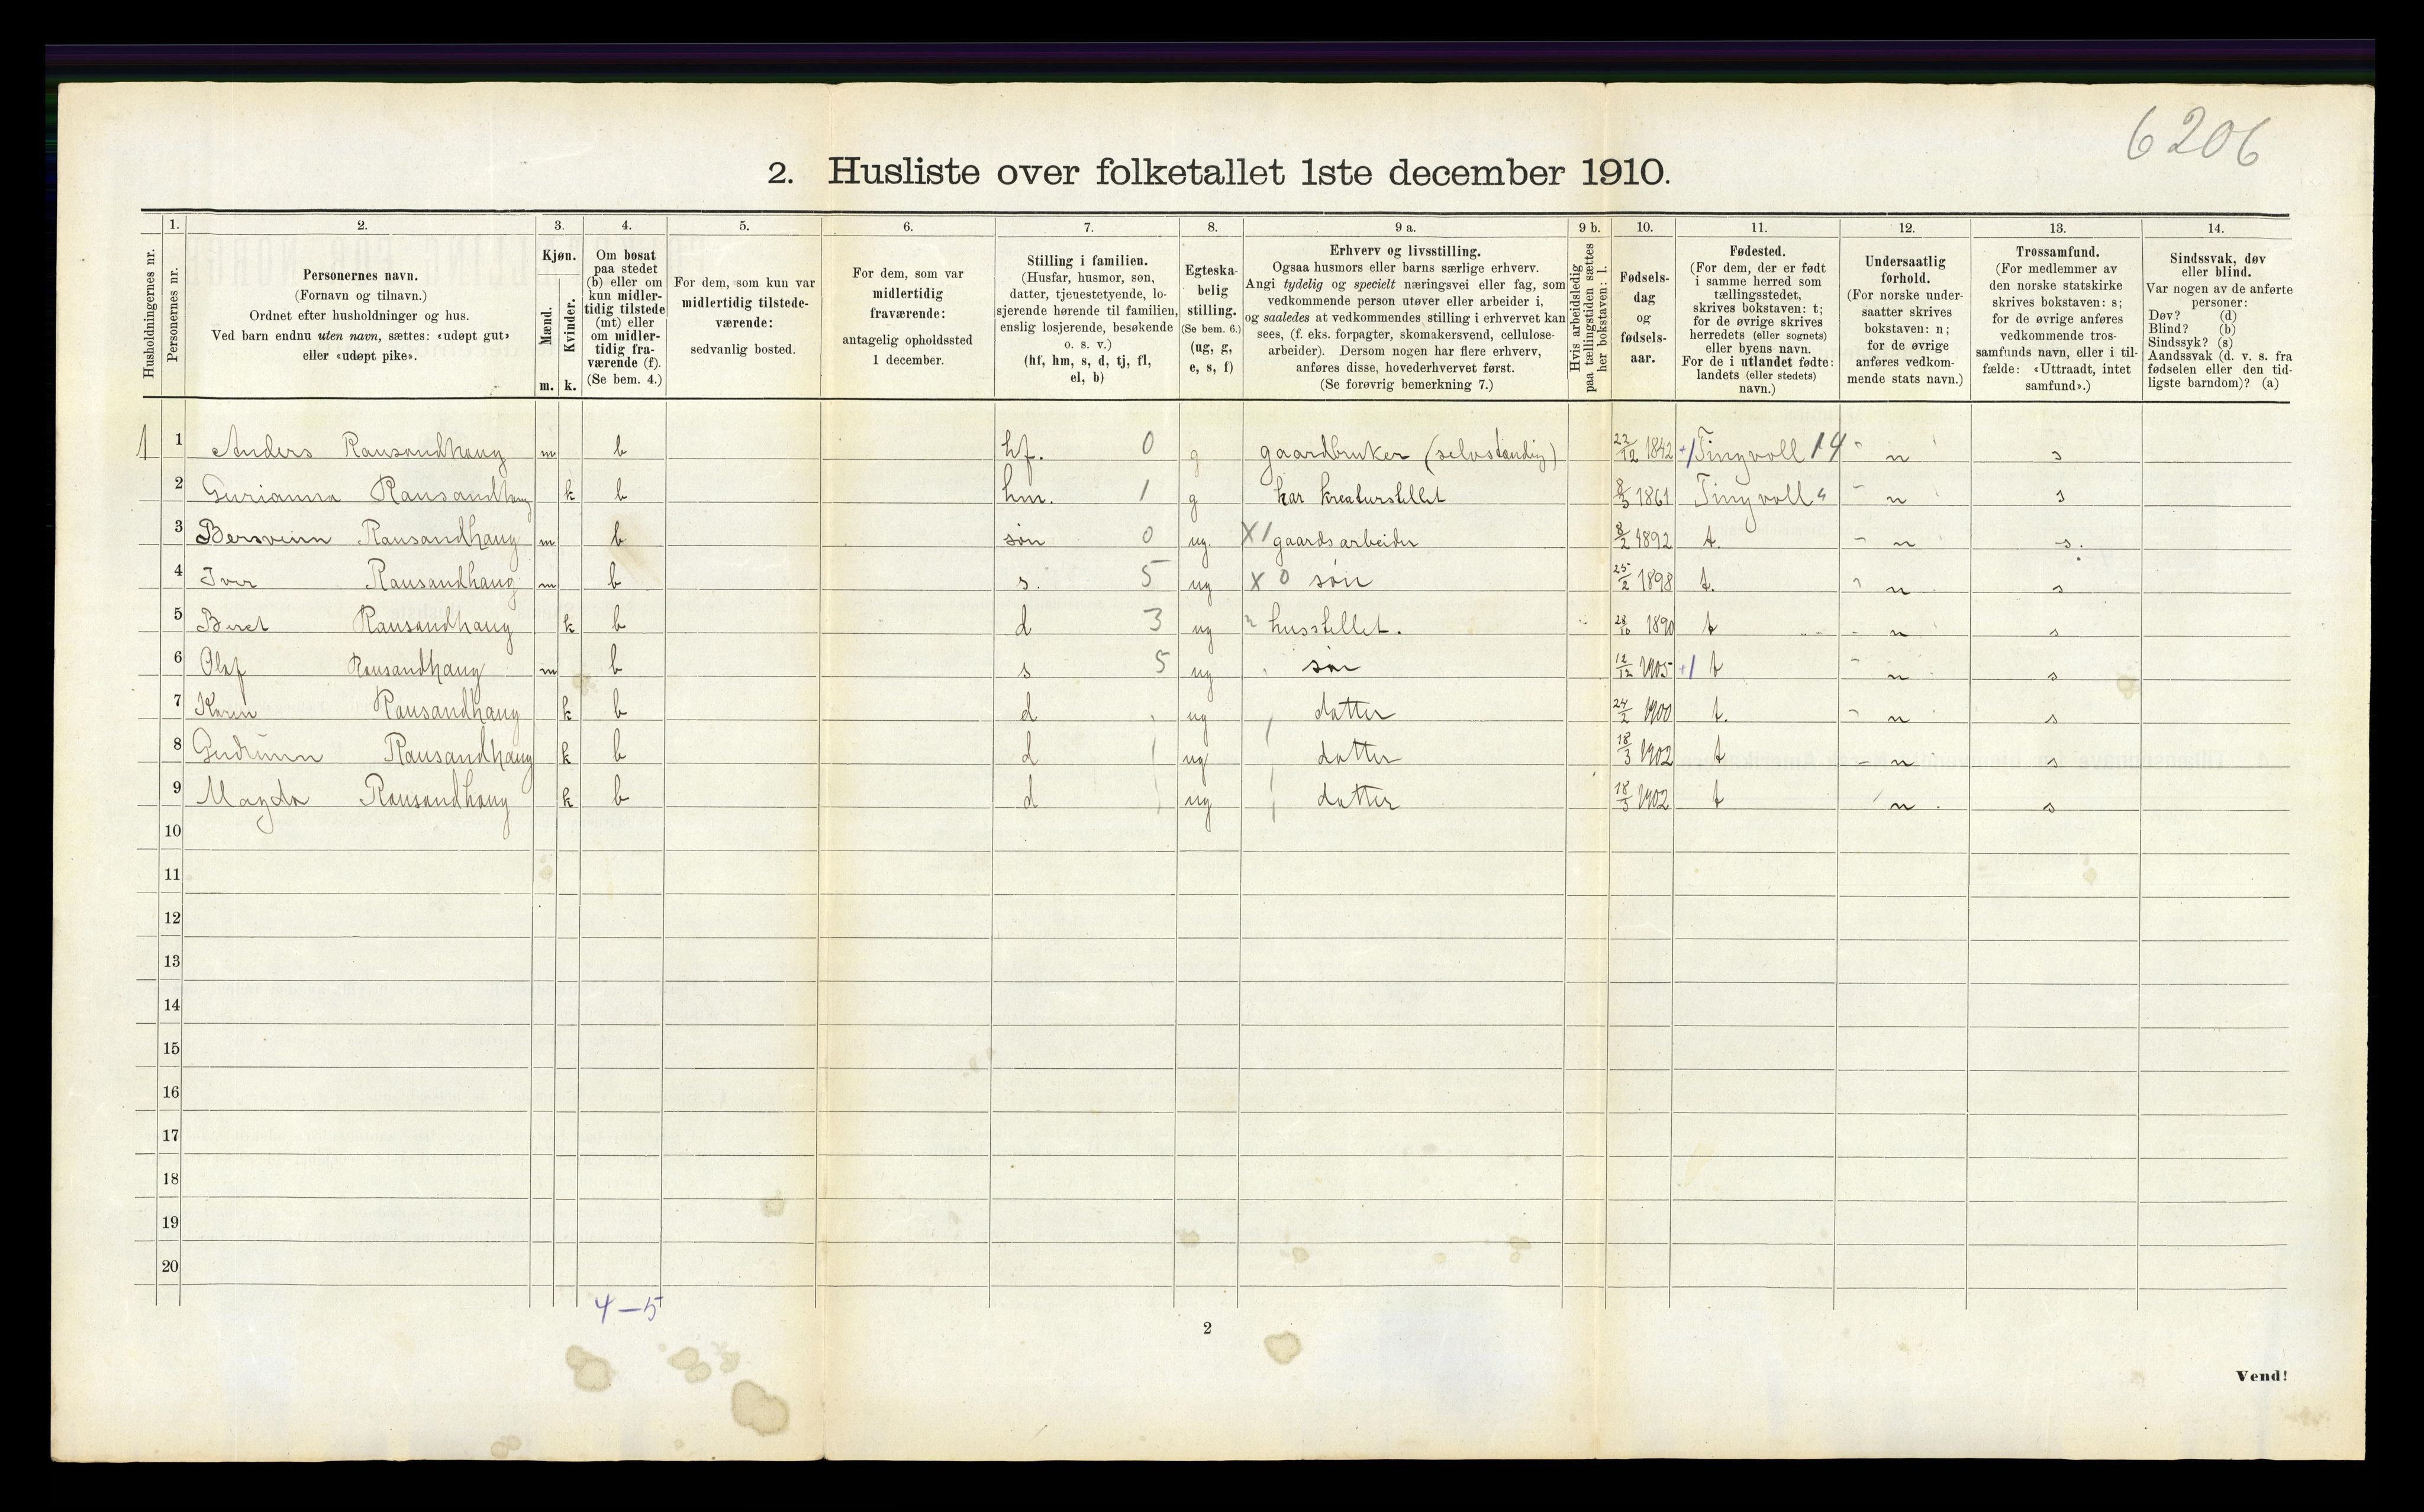 6206
2. Husliste over folketallet 1ste december 1910.
Husholdningernes nr.
1. Personernes nr.
2. Personernes navn.
(Fornavn og tilnavn.)
Ordnet efter husholdninger og hus.
Ved barn endnu uten navn, sættes: «udøpt gut»
eller «udøpt pike».
3. Kjøn.
Mænd. m.
Kvinder. k.
4. Om bosat
paa stedet
(b) eller om
kun midler-
tidig tilstede
(mt) eller
om midler-
tidig fra-
værende (f).
(Se bem. 4.)
5. For dem, som kun var
midlertidig tilstede-
værende:
sedvanlig bosted.
6. For dem, som var
midlertidig
fraværende:
antagelig opholdssted
1 december.
7. Stilling i familien.
(Husfar, husmor, søn,
datter, tjenestetyende, lo-
sjerende hørende til familien,
enslig losjerende, besøkende
o. s. v.)
(hf, hm, s, d, tj, fl,
el, b)
8. Egteska-
belig
stilling.
(Se bem. 6.)
(ug, g,
e, s, f)
9 a. Erhverv og livsstilling.
Ogsaa husmors eller barns særlige erhverv.
Angi tydelig og specielt næringsvei eller fag, som
vedkommende person utøver eller arbeider i,
og saaledes at vedkommendes stilling i erhvervet kan
sees, (f. eks. forpagter, skomakersvend, cellulose-
arbeider). Dersom nogen har flere erhverv,
anføres disse, hovederhvervet først.
(Se forøvrig bemerkning 7.)
9 b. Hvis arbeidsledig
paa tællingstiden sættes
her bokstaven: l.
10. Fødsels-
dag
og
fødsels-
aar.
11. Fødested.
(For dem, der er født
i samme herred som
tællingsstedet,
skrives bokstaven: t;
for de øvrige skrives
herredets (eller sognets)
eller byens navn.
For de i utlandet fødte:
landets (eller stedets)
navn.)
12. Undersaatlig
forhold.
(For norske under-
saatter skrives
bokstaven: n;
for de øvrige
anføres vedkom-
mende stats navn.)
13. Trossamfund.
(For medlemmer av
den norske statskirke
skrives bokstaven: s;
for de øvrige anføres
vedkommende tros-
samfunds navn, eller i til-
fælde: «Uttraadt, intet
samfund».)
14. Sindssvak, døv
eller blind.
Var nogen av de anførte
personer:
Døv? (d)
Blind? (b)
Sindssyk? (s)
Aandssvak (d. v. s. fra
fødselen eller den tid-
ligste barndom)? (a)
1 1 Anders Rausandhaug m b hf. 0 g gaardbruker (selvstændig) 22/12 1842 +1 Tingvoll 14 n s
2 Gurianna Rausandhaug k b hm. 1 g har kreaturstellet 8/3 1861 Tingvoll " n s
3 Bersvein Rausandhaug m b søn 0 ug. X1 gaardsarbeider 8/2 1892 t. n s.
4 Iver Rausandhaug m b s. 5 ug X 0 søn 25/2 1898 t. n s
5 Beret Rausandhaug k b d 3 ug husstellet. 28/10 1890 t n s
6 Olaf Rausandhaug m b s 5 ug søn 12/12 1905 +1 t n s
7 Karen Rausandhaug k b d ug datter 24/2 1900 t. n s
8 Gudrunn Rausandhaug k b d ug datter 18/3 1902 t n s
9 Magda Rausandhaug k b d ug datter 18/3 1902 t n s
10
11
12
13
14
15
16
17
18
19
20
4—5
2
Vend!